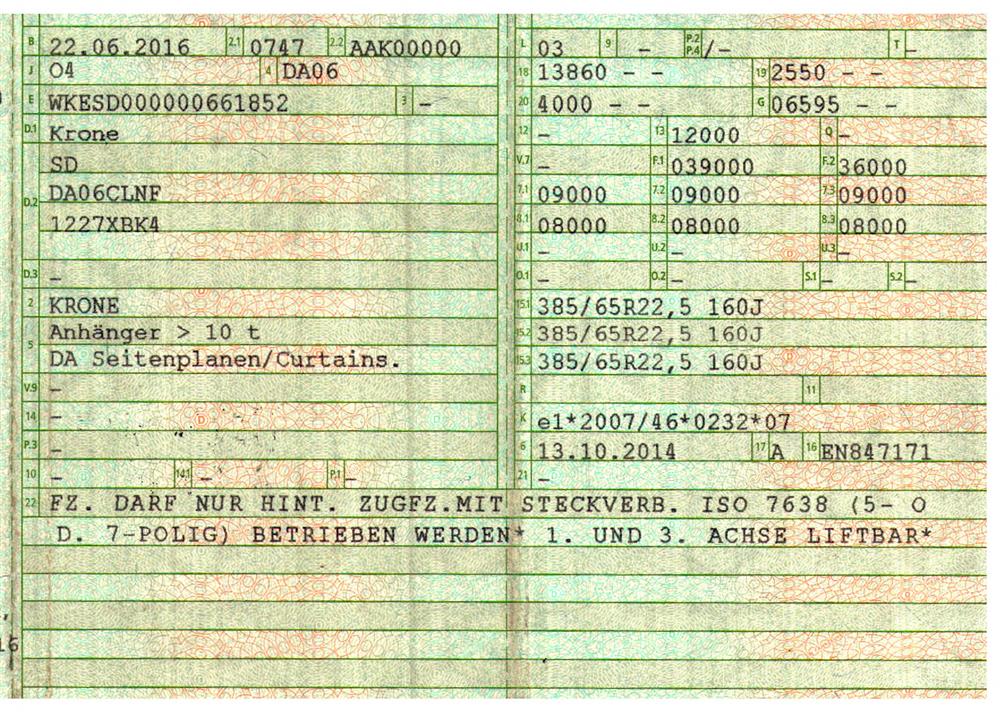 B 22.06.2016 2.1 0747 2.2 AAK00000 L 03 9 – P.2 P.4 /– T –
J O4 4 DA06 18 13860 – – 19 2550 – –
E WKESD000000661852 3 – 20 4000 – – G 06595 – –
D.1 Krone 12 – 13 12000 Q –
SD V.7 – F.1 039000 F.2 36000
D.2 DA06CLNF 7.1 09000 7.2 09000 7.3 09000
1227XBK4 8.1 08000 8.2 08000 8.3 08000
U.1 – U.2 – U.3 –
D.3 – O.1 – O.2 – S.1 – S.2 –
2 KRONE 15.1 385/65R22,5 160J
5 Anhänger > 10 t 15.2 385/65R22,5 160J
DA Seitenplanen/Curtains. 15.3 385/65R22,5 160J
V.9 – R 11
14 – K e1*2007/46*0232*07
P.3 – 6 13.10.2014 17 A 16 EN847171
10 – 14.1 – P.1 – 21 –
22 FZ. DARF NUR HINT. ZUGFZ.MIT STECKVERB. ISO 7638 (5- O
D. 7-POLIG) BETRIEBEN WERDEN* 1. UND 3. ACHSE LIFTBAR*
16